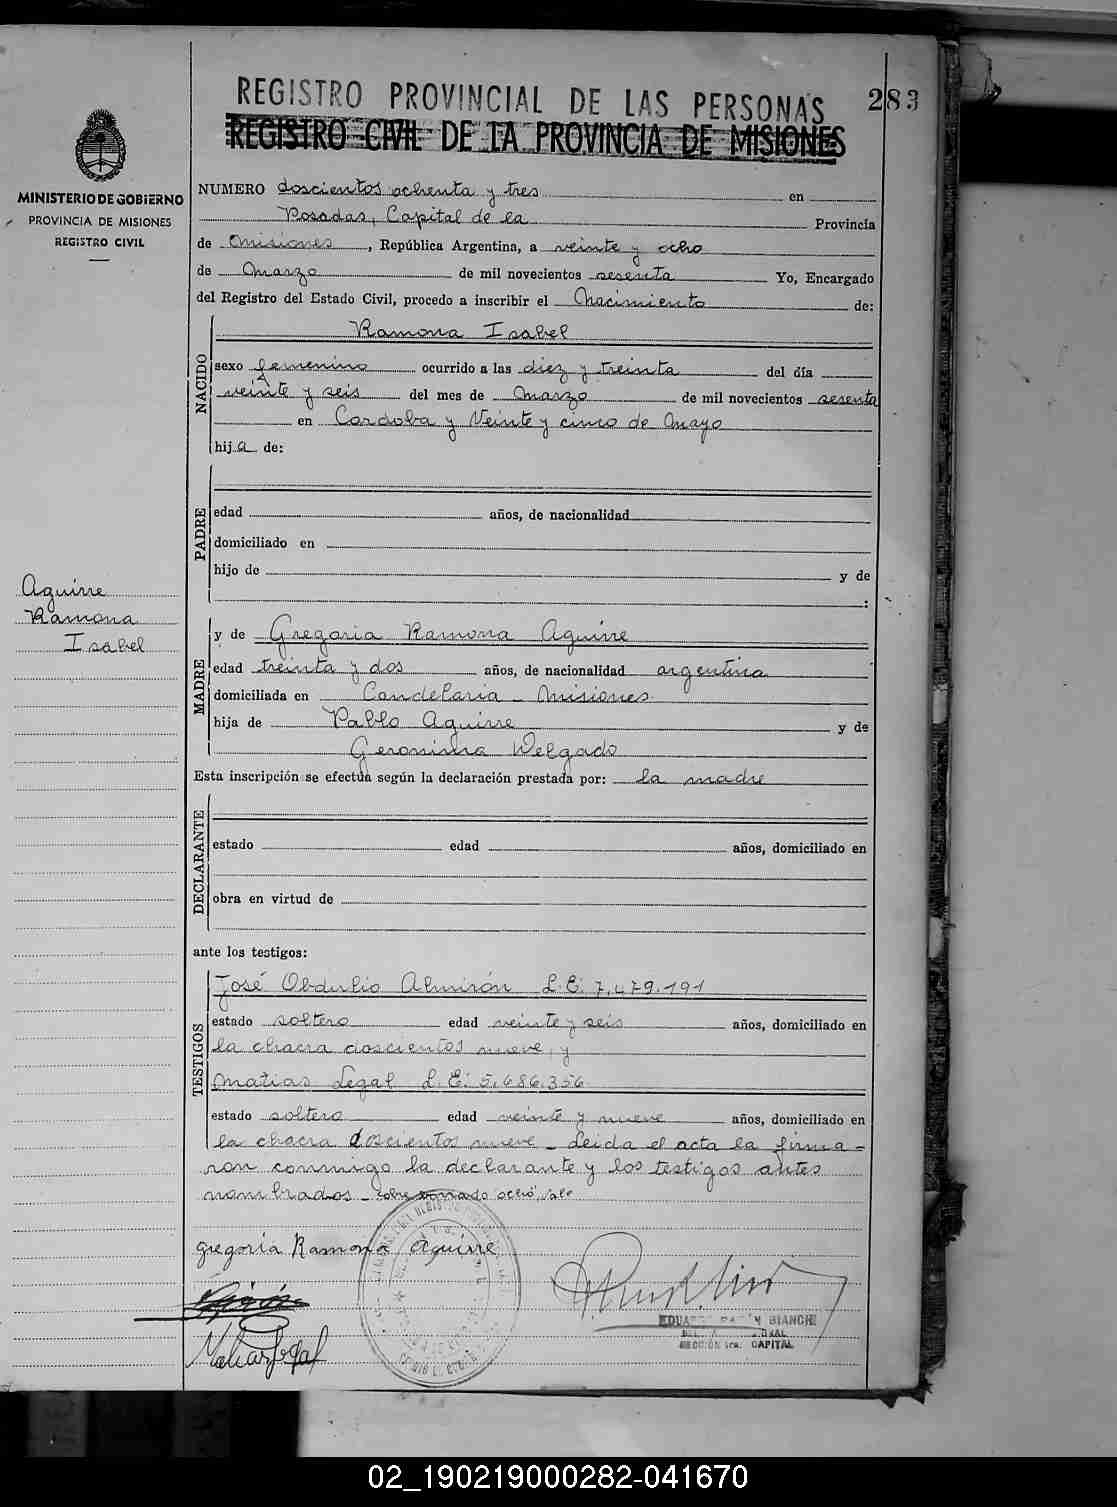 REGISTRO PROVINCIAL DE LAS PERSONAS
283
REGISTRO CIVIL DE LA PROVINCIA DE MISIONES
MINISTERIO DE GOBIERNO
PROVINCIA DE MISIONES
REGISTRO CIVIL
NUMERO doscientos ochenta y tres en
Posadas, Capital de la Provincia
de Misiones, República Argentina, a veinte y ocho
de Marzo de mil novecientos sesenta Yo, Encargado
del Registro del Estado Civil, procedo a inscribir el Nacimiento de:
NACIDO
Ramona Isabel
sexo femenino ocurrido a las diez y treinta del día
veinte y seis del mes de Marzo de mil novecientos sesenta
en Cordoba y Veinte y cinco de Mayo
hija de:
PADRE
edad años, de nacionalidad
domiciliado en
hijo de y de
:
Aguirre
Ramona
Isabel
MADRE
y de Gregoria Ramona Aguirre
edad treinta y dos años, de nacionalidad argentina
domiciliada en Candelaria - Misiones
hija de Pablo Aguirre y de
Geronima Delgado
Esta inscripción se efectúa según la declaración prestada por: la madre
DECLARANTE
estado edad años, domiciliado en
obra en virtud de
ante los testigos:
TESTIGOS
José Obdulio Almirón L.E: 7.479.191
estado soltero edad veinte y seis años, domiciliado en
la chacra doscientos nueve, y
Matias Legal L.E: 5.686.356
estado soltero edad veinte y nueve años, domiciliado en
la chacra doscientos nueve - Leida el acta la firma-
ron conmigo la declarante y los testigos antes
nombrados - sobre borrado "ocho", vale
gregoria Ramona Aguirre
Matias Legal
EDUARDO BIANCHI
SECCIÓN 1ra. CAPITAL
02_190219000282-041670